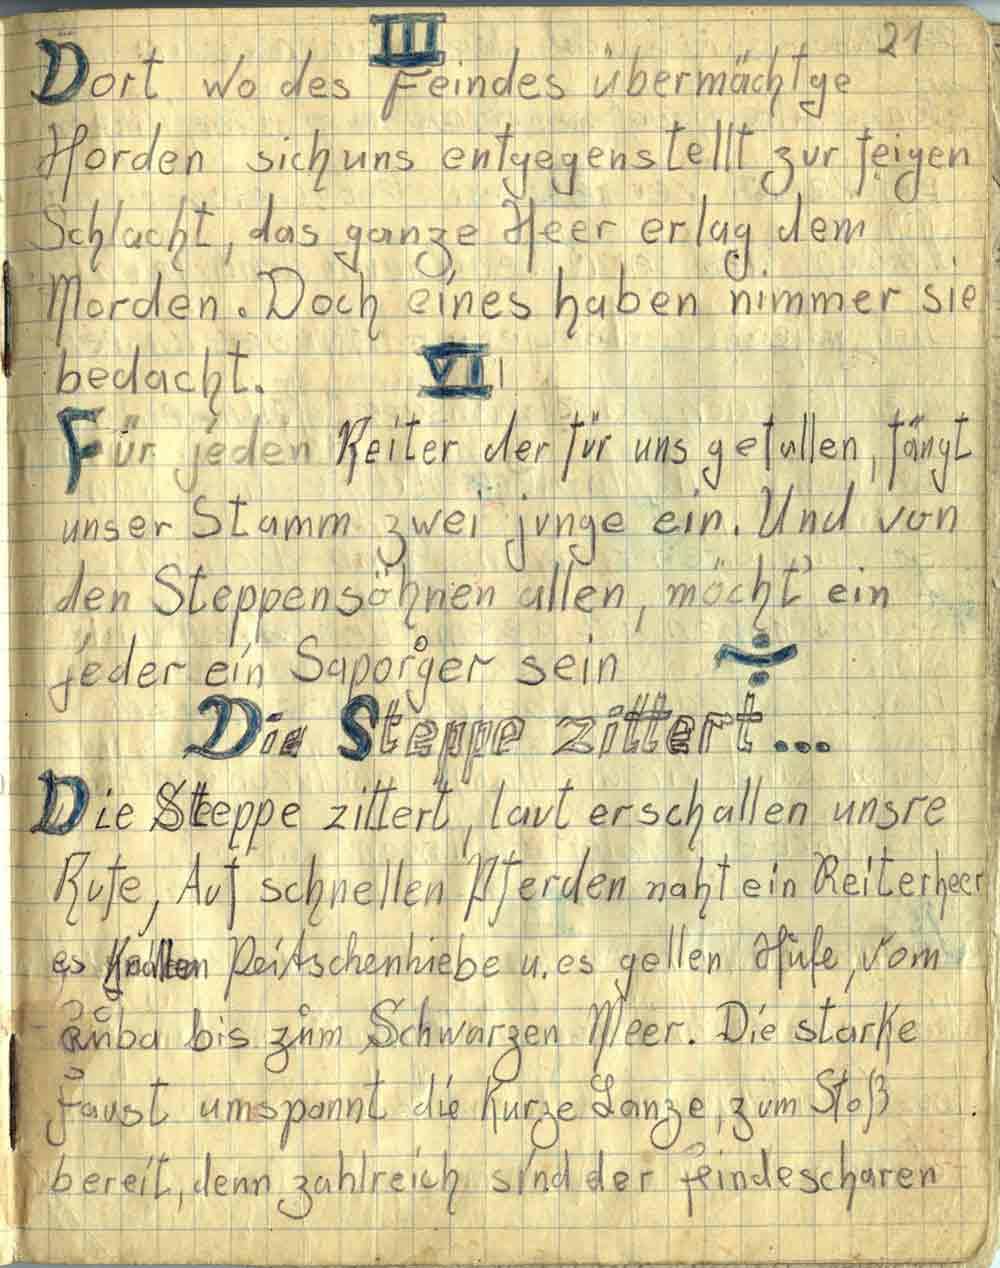 III 21
Dort wo des Feindes übermächtge
Horden sich uns entgegenstellt zur feigen
Schlacht, das ganze Heer erlag dem
Morden. Doch eines haben nimmer sie
bedacht. VII
Für jeden Reiter der für uns gefallen, fängt
unser Stamm zwei junge ein. Und von
den Steppensöhnen allen, möcht' ein
jeder ein Saporger sein
Die Steppe zittert...
Die Steppe zittert, laut erschallen unsre
Rufe, Auf schnellen Pferden naht ein Reiterheer
es knallen Peitschenhiebe u. es gellen Hufe, vom
bis zum Schwarzen Meer. Die starke
Faust umspannt die Kurze Lanze, zum Stoß
bereit, denn zahlreich sind der feindescharen